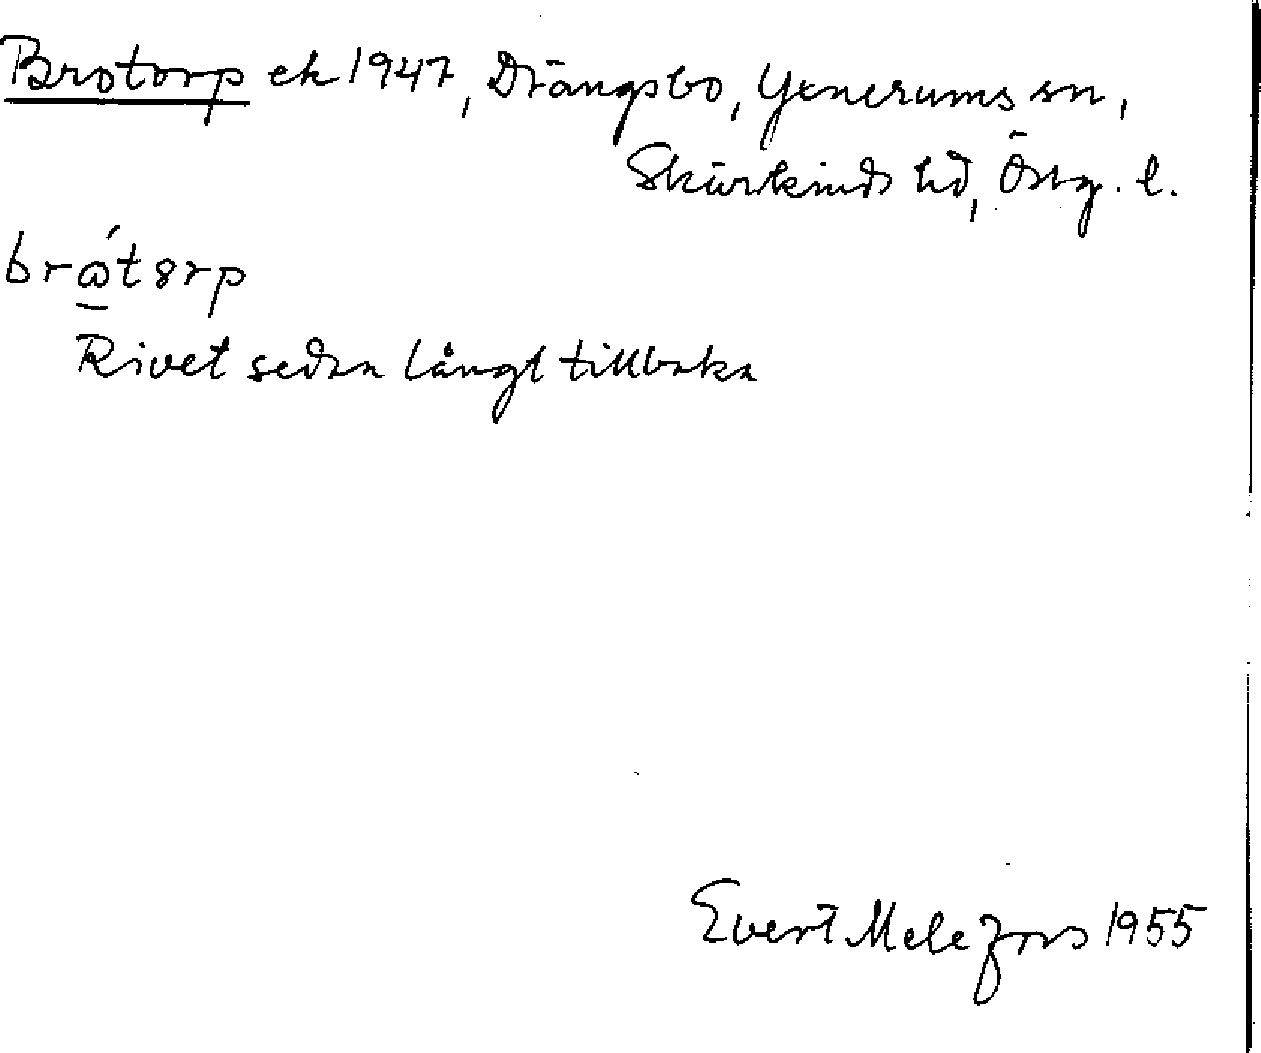 Brotorp ek 1947, Drängsbo, Yxnerums sn,
Skärkinds hd, Östg. l.
brώtȣrp
Rivet sedan långt tillbaka
Evert Melefors 1955